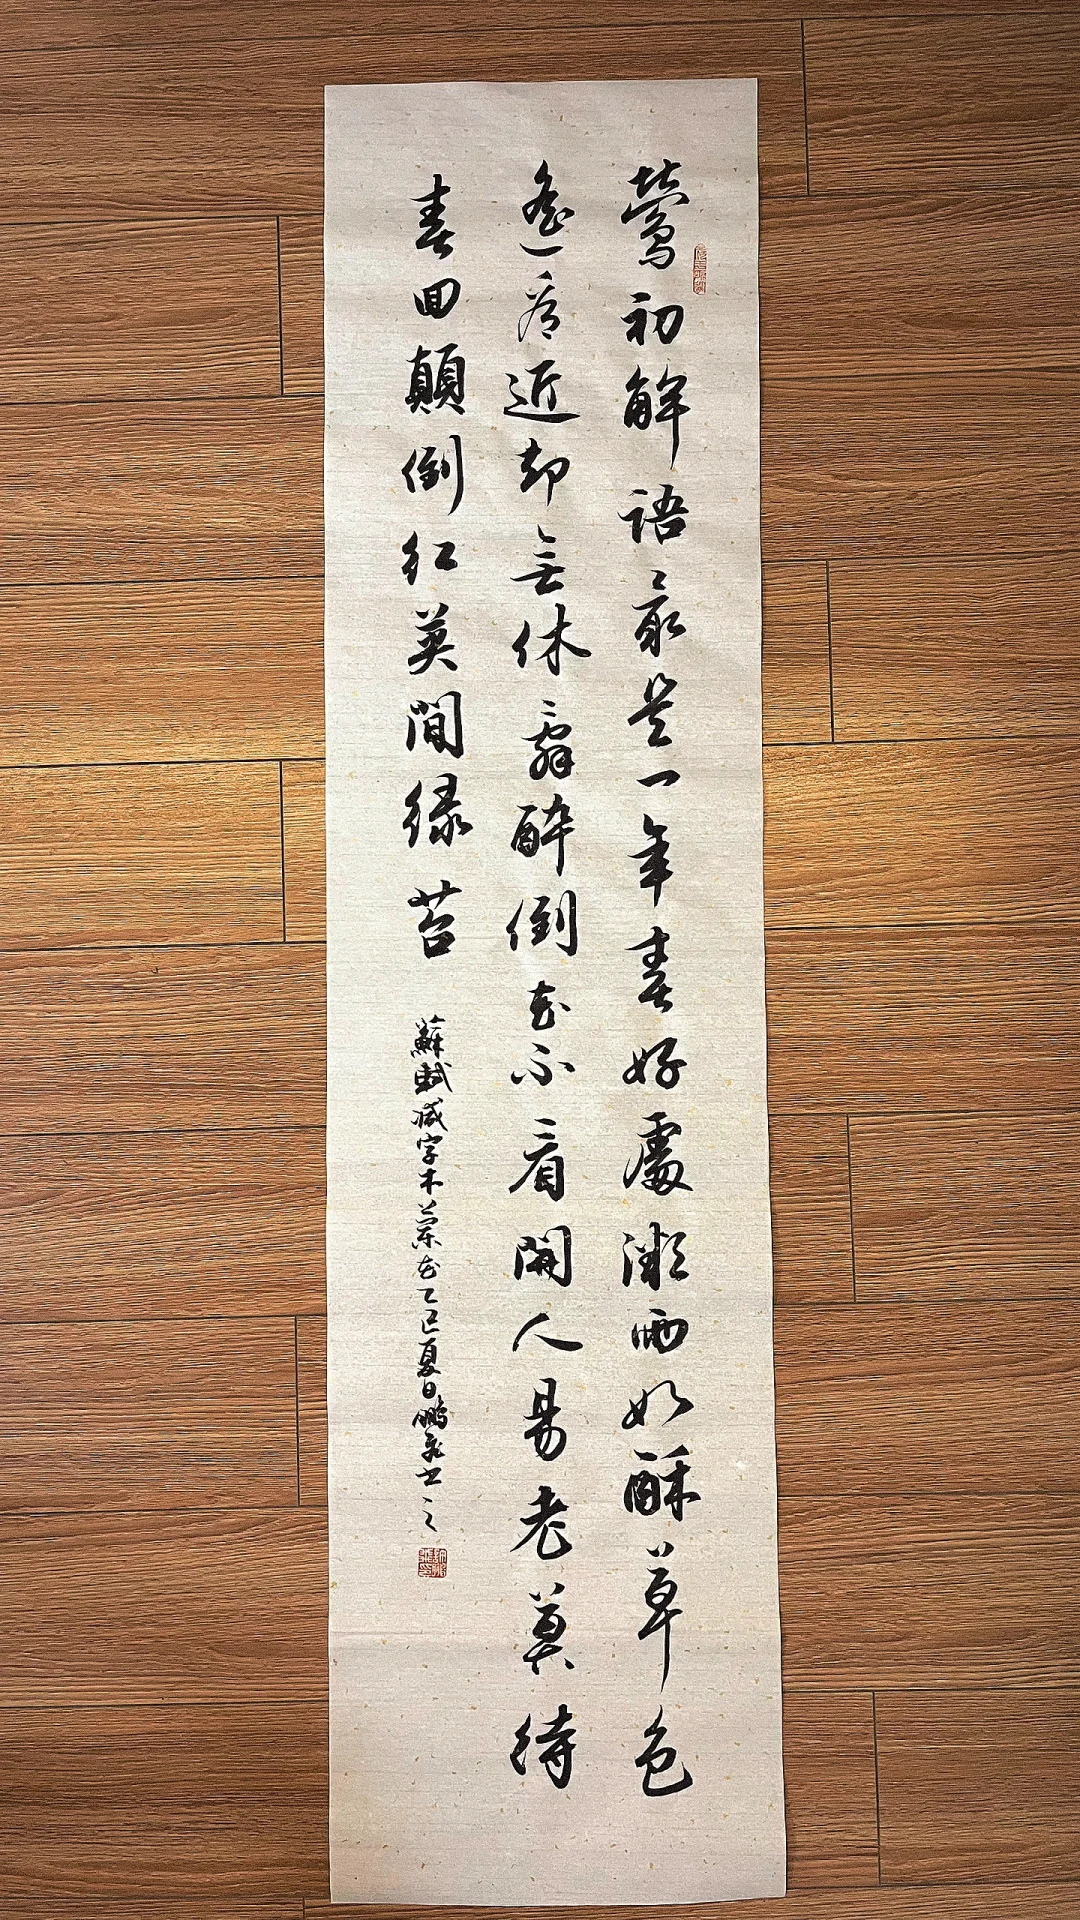 鶯初解語最是一年春好處微雨如酥草色
遙看近却無休辭醉倒花不看開人易老莫待
春回顛倒紅英間绿苔
蘇軾減字木蘭花乙巳夏日鵬飛書之